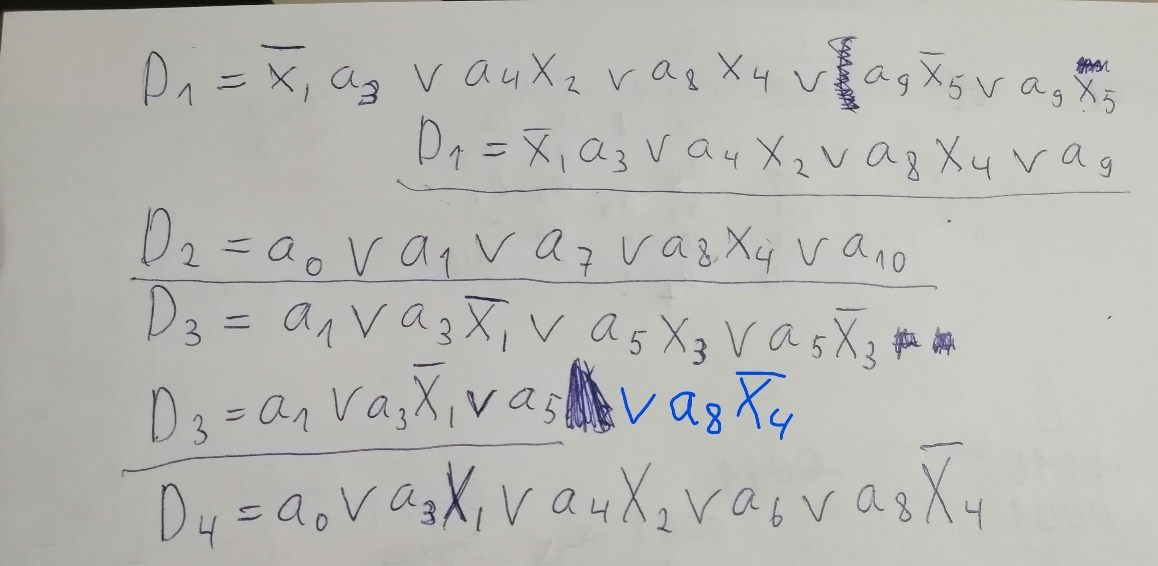 D₁ = x̄₁ a₃ ∨ a₄ x₂ ∨ a₈ x₄ ∨ a₉ x̄₅ ∨ a₉ x₅
D₁ = x̄₁ a₃ ∨ a₄ x₂ ∨ a₈ x₄ ∨ a₉
D₂ = a₀ ∨ a₁ ∨ a₇ ∨ a₈ x₄ ∨ a₁₀
D₃ = a₁ ∨ a₃ x̄₁ ∨ a₅ x₃ ∨ a₅ x̄₃
D₃ = a₁ ∨ a₃ x̄₁ ∨ a₅ ∨ a₈ x̄₄
D₄ = a₀ ∨ a₃ x₁ ∨ a₄ x₂ ∨ a₆ ∨ a₈ x̄₄